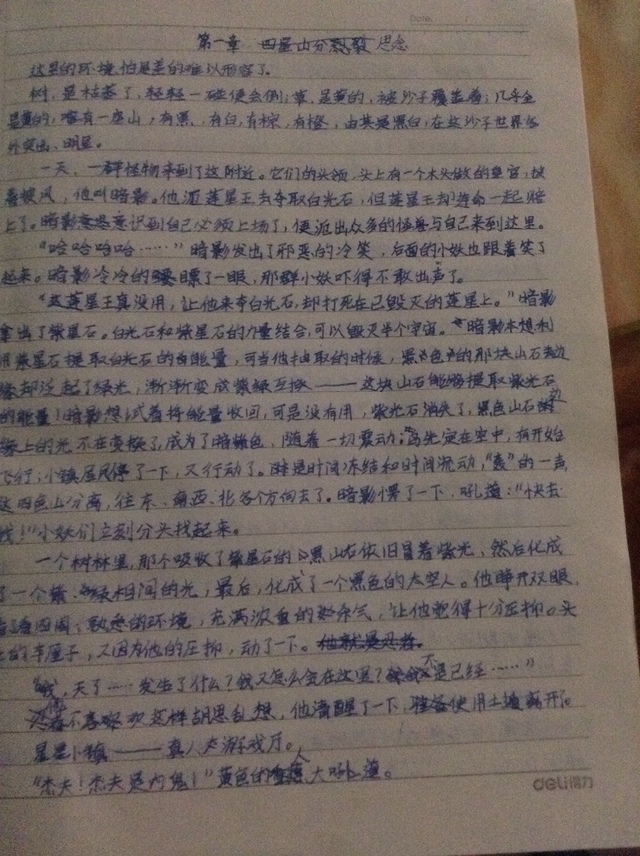 Date.
第一章 四星山分裂 思念
这里的环境,怕是差的难以形容了。
树,是枯萎了,轻轻一碰便会倒;草,是黄的,被沙子覆盖着;几乎全
是黄的;唯有一座山,有黑,有白,有棕,有橙,由其是黑白,在这沙子世界格
外突出、明显。
一天,一群怪物来到了这附近。它们的头领,头上有一个木头做的皇冠,披
着披风,他叫暗影。他派莲星王去夺取白光石,但莲星王却连命一起赔
上了。暗影意识到自己必须上场了,便派出众多的怪兽与自己来到这里。
“哈哈哈哈……”暗影发出了邪恶的冷笑,后面的小妖也跟着笑了
起来。暗影冷冷的瞟了一眼,那群小妖吓得不敢出声了。
“这莲星王真没用,让他来夺白光石,却打死在已毁灭的莲星上。”暗影
拿出了紫星石。白光石和紫星石的力量结合,可以毁灭半个宇宙。暗影本想利
用紫星石提取白光石的能量,可当他抽取的时候,黑色的那块山石边
缘却泛起了绿光,渐渐变成紫绿互换——这块山石能够提取紫光石
的能量!暗影想试着将能量收回,可是没有用,紫光石消失了,黑色山石边
缘上的光不在变换了,成为了暗绿色,随着一切震动,先定在空中,有开始
飞行;小镇居民停了一下,又行动了。时间冻结和时间流动,“轰”的一声,
这四色山分离,往东、西、北各个方向去了。暗影愣了一下,吼道:“快去
找!”小妖们立刻分头找起来。
一个树林里,那个吸收了紫星石的黑山石依旧冒着紫光,然后化成
了一个紫、绿相间的光,最后,化成了一个黑色的太空人。他睁开双眼,
看了看四周;熟悉的环境,充满浓重的杀气,让他觉得十分压抑。头
上的车厘子,又因为他的压抑,动了一下。他就是忍者。
“我,天了……发生了什么?我又怎么会在这里?我不是已经……”
不喜欢这样胡思乱想,他清醒了一下,准备使用土遁离开。
星星小镇——真人大游戏厅。
“杰夫!杰夫是内鬼!”黄色的人大吼道。
deli得力